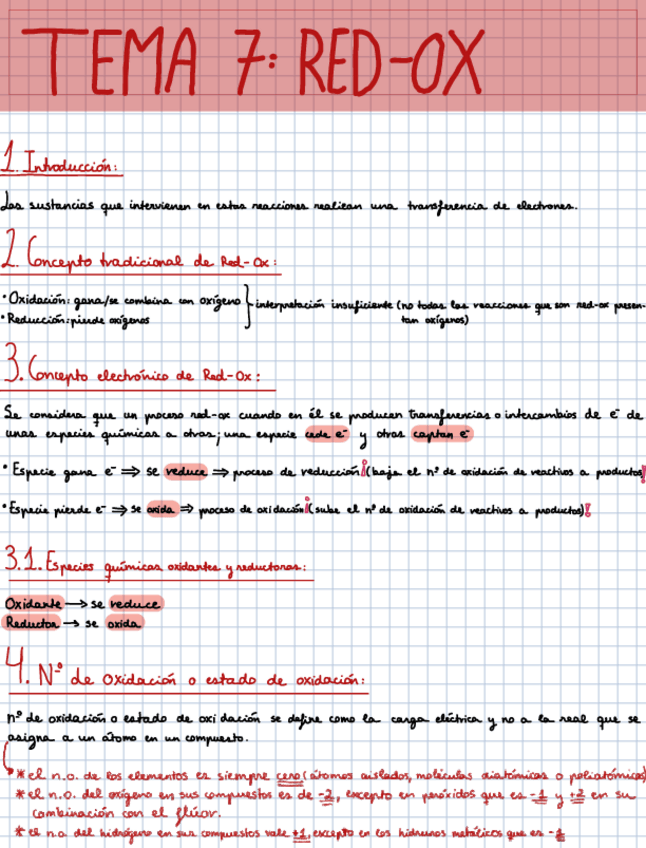 TEMA 7: RED-OX
1. Introducción:
Las sustancias que intervienen en estas reacciones realizan una transferencia de electrones.
2. Concepto tradicional de Red-Ox:
· Oxidación: gana/se combina con oxígeno } interpretación insuficiente (no todas las reacciones que son red-ox presen-
· Reducción: pierde oxígenos tan oxígenos)
3. Concepto electrónico de Red-Ox:
Se considera que un proceso red-ox cuando en él se producen transferencias o intercambios de e⁻ de
unas especies químicas a otras; una especie cede e⁻ y otras captan e⁻
· Especie gana e⁻ ⇒ se reduce ⇒ proceso de reducción ¡(baja el nº de oxidación de reactivos a productos)!
· Especie pierde e⁻ ⇒ se oxida ⇒ proceso de oxidación ¡(sube el nº de oxidación de reactivos a productos)!
3.1. Especies químicas oxidantes y reductoras:
Oxidante → se reduce
Reductor → se oxida
4. Nº de oxidación o estado de oxidación:
nº de oxidación o estado de oxidación se define como la carga eléctrica y no a la real que se
asigna a un átomo en un compuesto.
* el n.o. de los elementos es siempre cero (átomos aislados, moléculas diatómicas o poliatómicas)
* el n.o. del oxígeno en sus compuestos es de -2, excepto en peróxidos que es -1 y +2 en su
combinación con el flúor.
* el n.o. del hidrógeno en sus compuestos vale +1, excepto en los hidruros metálicos que es -1